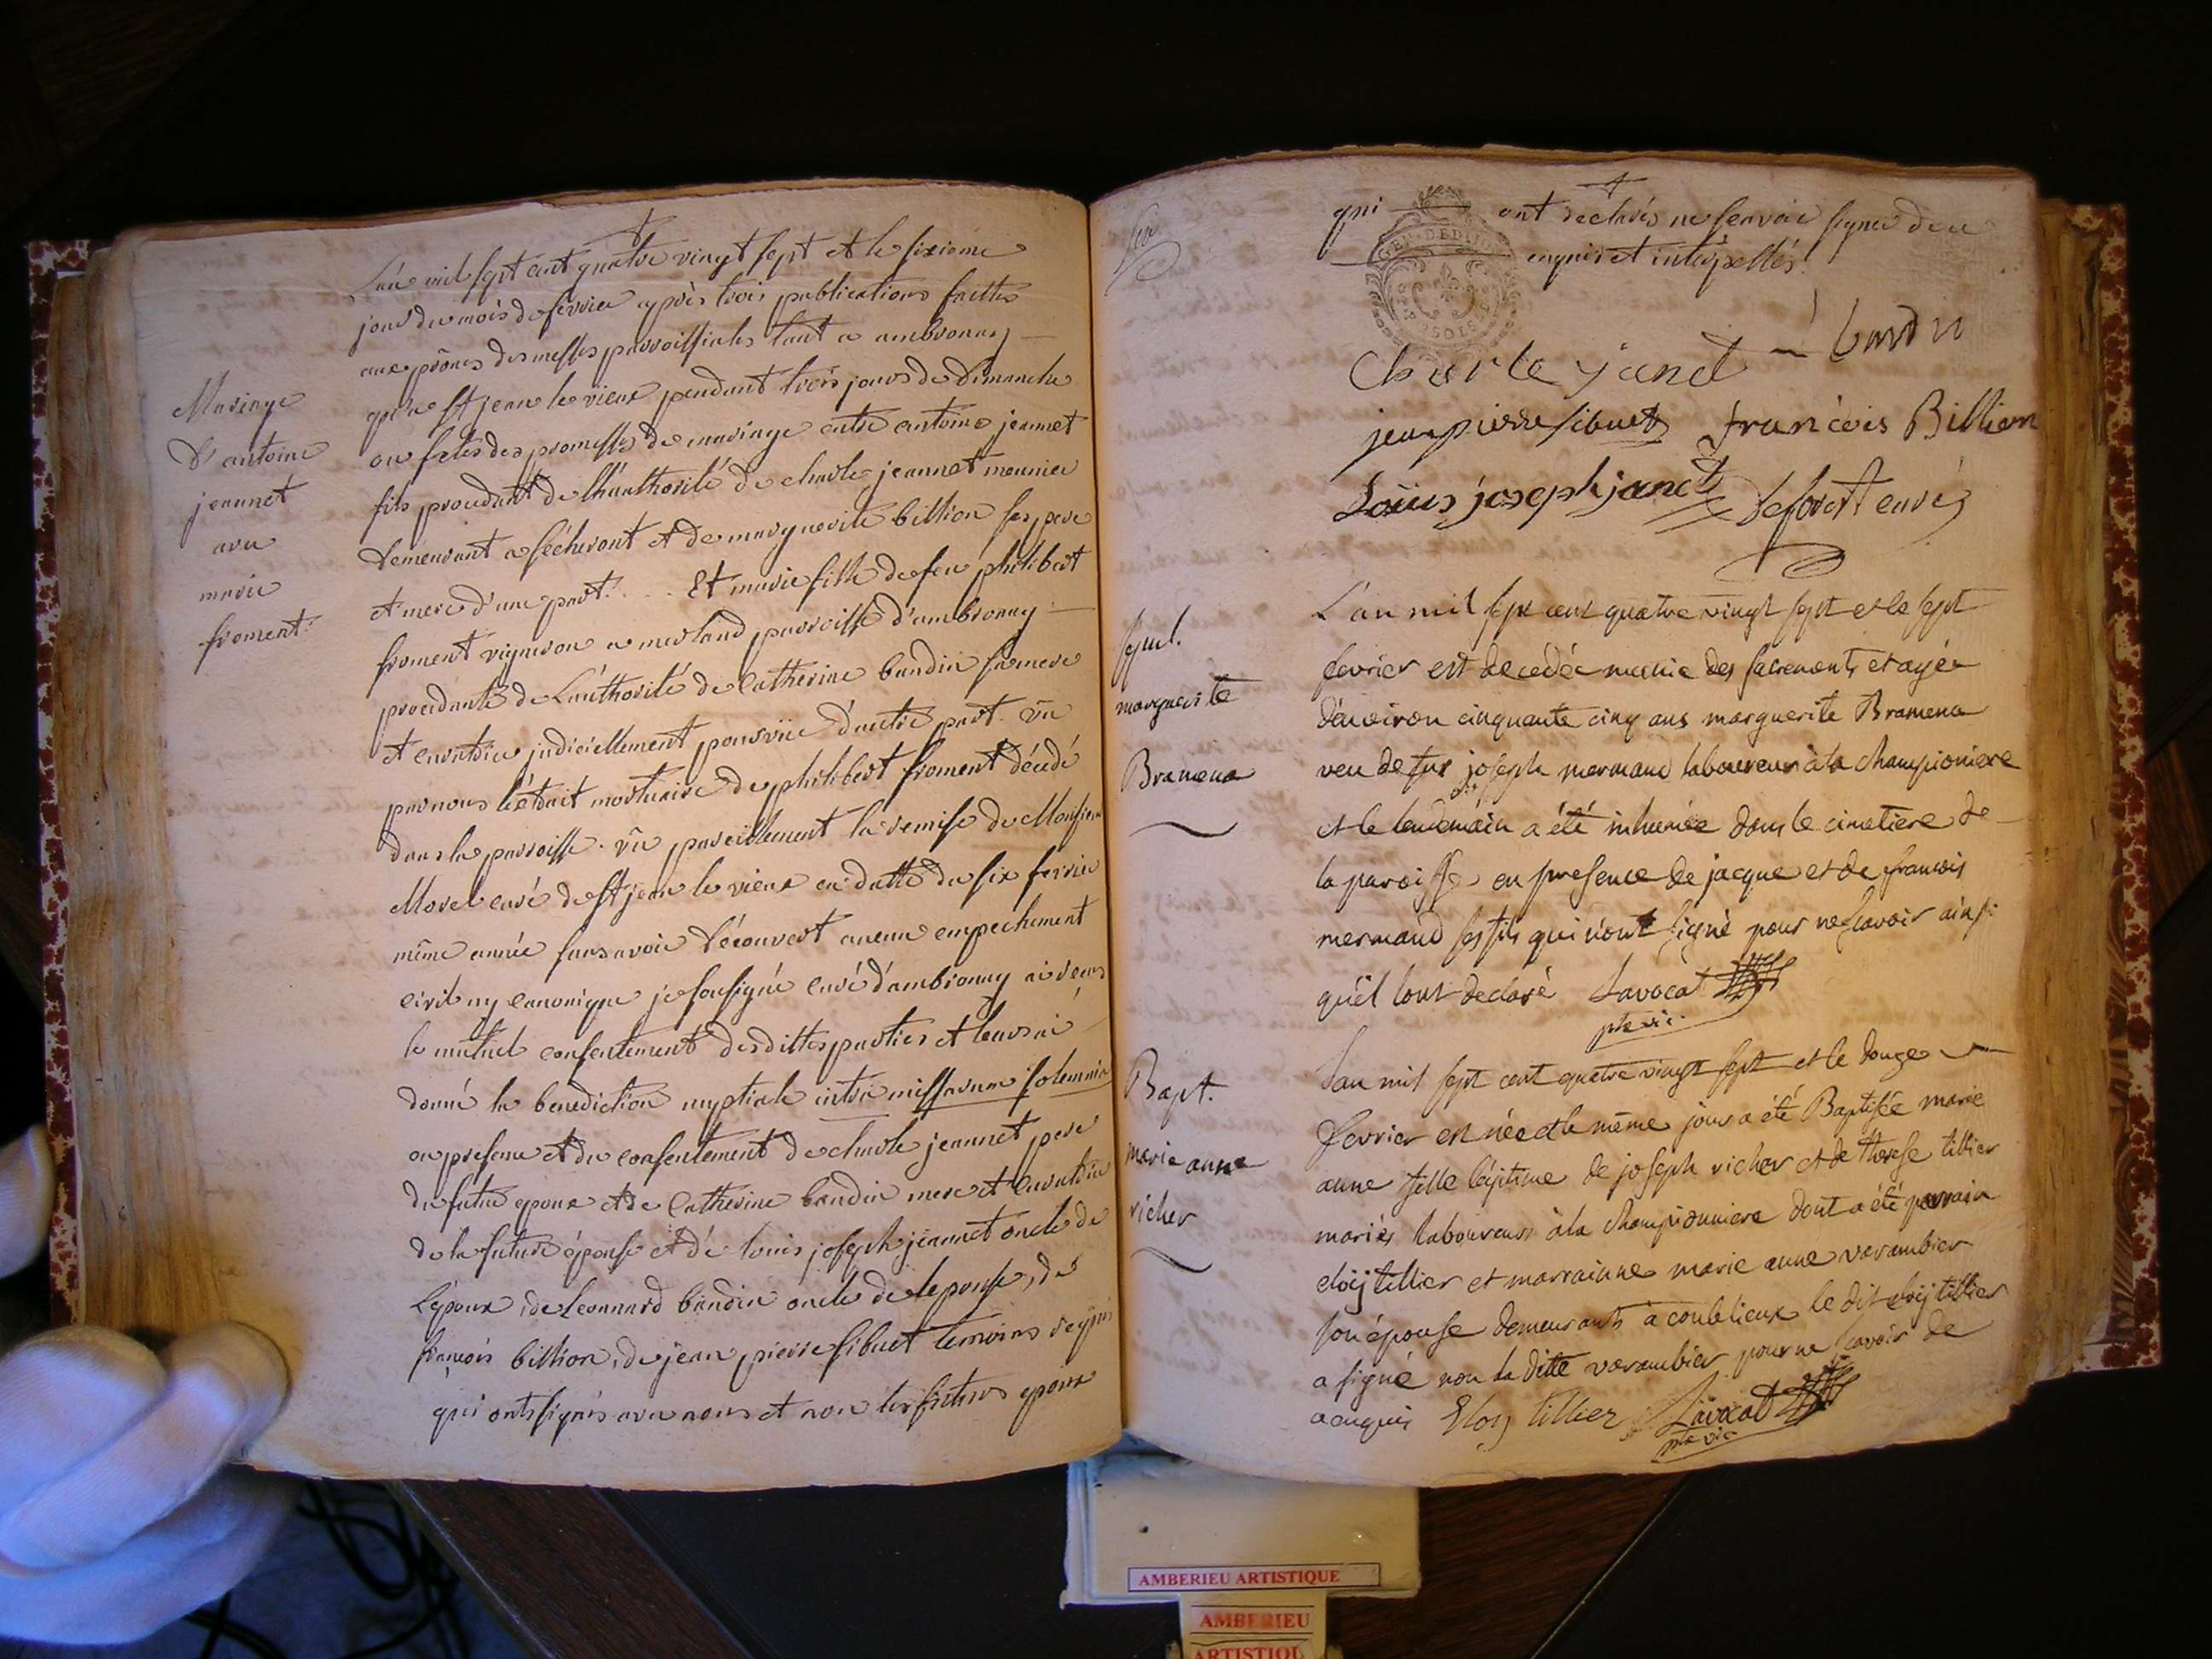 L'an mil sept cent quatre vingt sept et le sixieme
jour du mois de fevrier après trois publications faittes
aux prônes des messes parroissiales tant a ambronay
qu'a st jean le vieux pendant trois jours de dimanche
ou fetes des promesses de mariage entre antoine jeannet
fils procedant de l'hauthorité de charle jeannet meunier
demeurant a sécheront et de marguerite billion ses pere
et mere d'une part. Et marie fille de feu philibert
froment vigneron a merland parroisse d'ambronay
procedante de L'authorité de Catherine baudin sa mere
et curatrice judiciellement pourvüe d'autre part. vû
par nous l'étrait mortuaire de philibert froment décédé
dans la parroisse. vû pareillement la remise de Monsieur
Morel curé de st jean le vieux en datte du six fevrier
même année sans avoir découvert aucun empechement
civil ny canonique je soussigné curé d'ambronay ai reçus
le mutuel consentement desdittes parties et leurs ai
donné la benediction nuptiale intra missarum solemnia
en presence et du consentement de charle jeannet pere
du futur epoux et de Catherine baudin mere et curatrice
de la future épouse et de louis joseph jeannet oncle de
L'epoux, de Leonnard baudin oncle de lepouse, de
françois billion, de jean pierre sibuet temoins requis
qui onts signés avec nous et non les futurs epoux
Mariage
d'antoine
jeannet
avec
marie
froment.
qui ont declarés ne scavoir signer de ce
enquis et interpellés.
GEN. DE DIJON
Charle janet baudin
jean pierre sibuet françois Billion
Loüis joseph janet deforest curé
sepul.
marguerite
Bramena
L'an mil sept cent quatre vingt sept et le sept
fevrier est decedée munie des sacrements et agée
d'environ cinquante cinq ans marguerite Bramena
veu de fut joseph mermand laboureur à la championiere
et le lendemain a été inhumée dans le cimetiere de
la paroisse en presence de jacque et de francois
mermand ses fils qui n'ont signé pour ne scavoir ainsi
qu'il lont declaré Lavocat
ptre vic.
Bapt.
marie anne
richer
L'an mil sept cent quatre vingt sept et le douze
fevrier est née et le même jour a été Baptisée marie
anne fille légitime de joseph richer et de therese tillier
mariés laboureurs à la championniere dont a été parrain
eloij tillier et marrainne marie anne varambier
son épouse demeurants a coutelieux le dit eloij tillier
a signé non la ditte varambier pour ne scavoir de
ce enquis Eloy tillier Lavocat
ptre vic
AMBERIEU ARTISTIQUE
AMBERIEU
ARTISTIQU